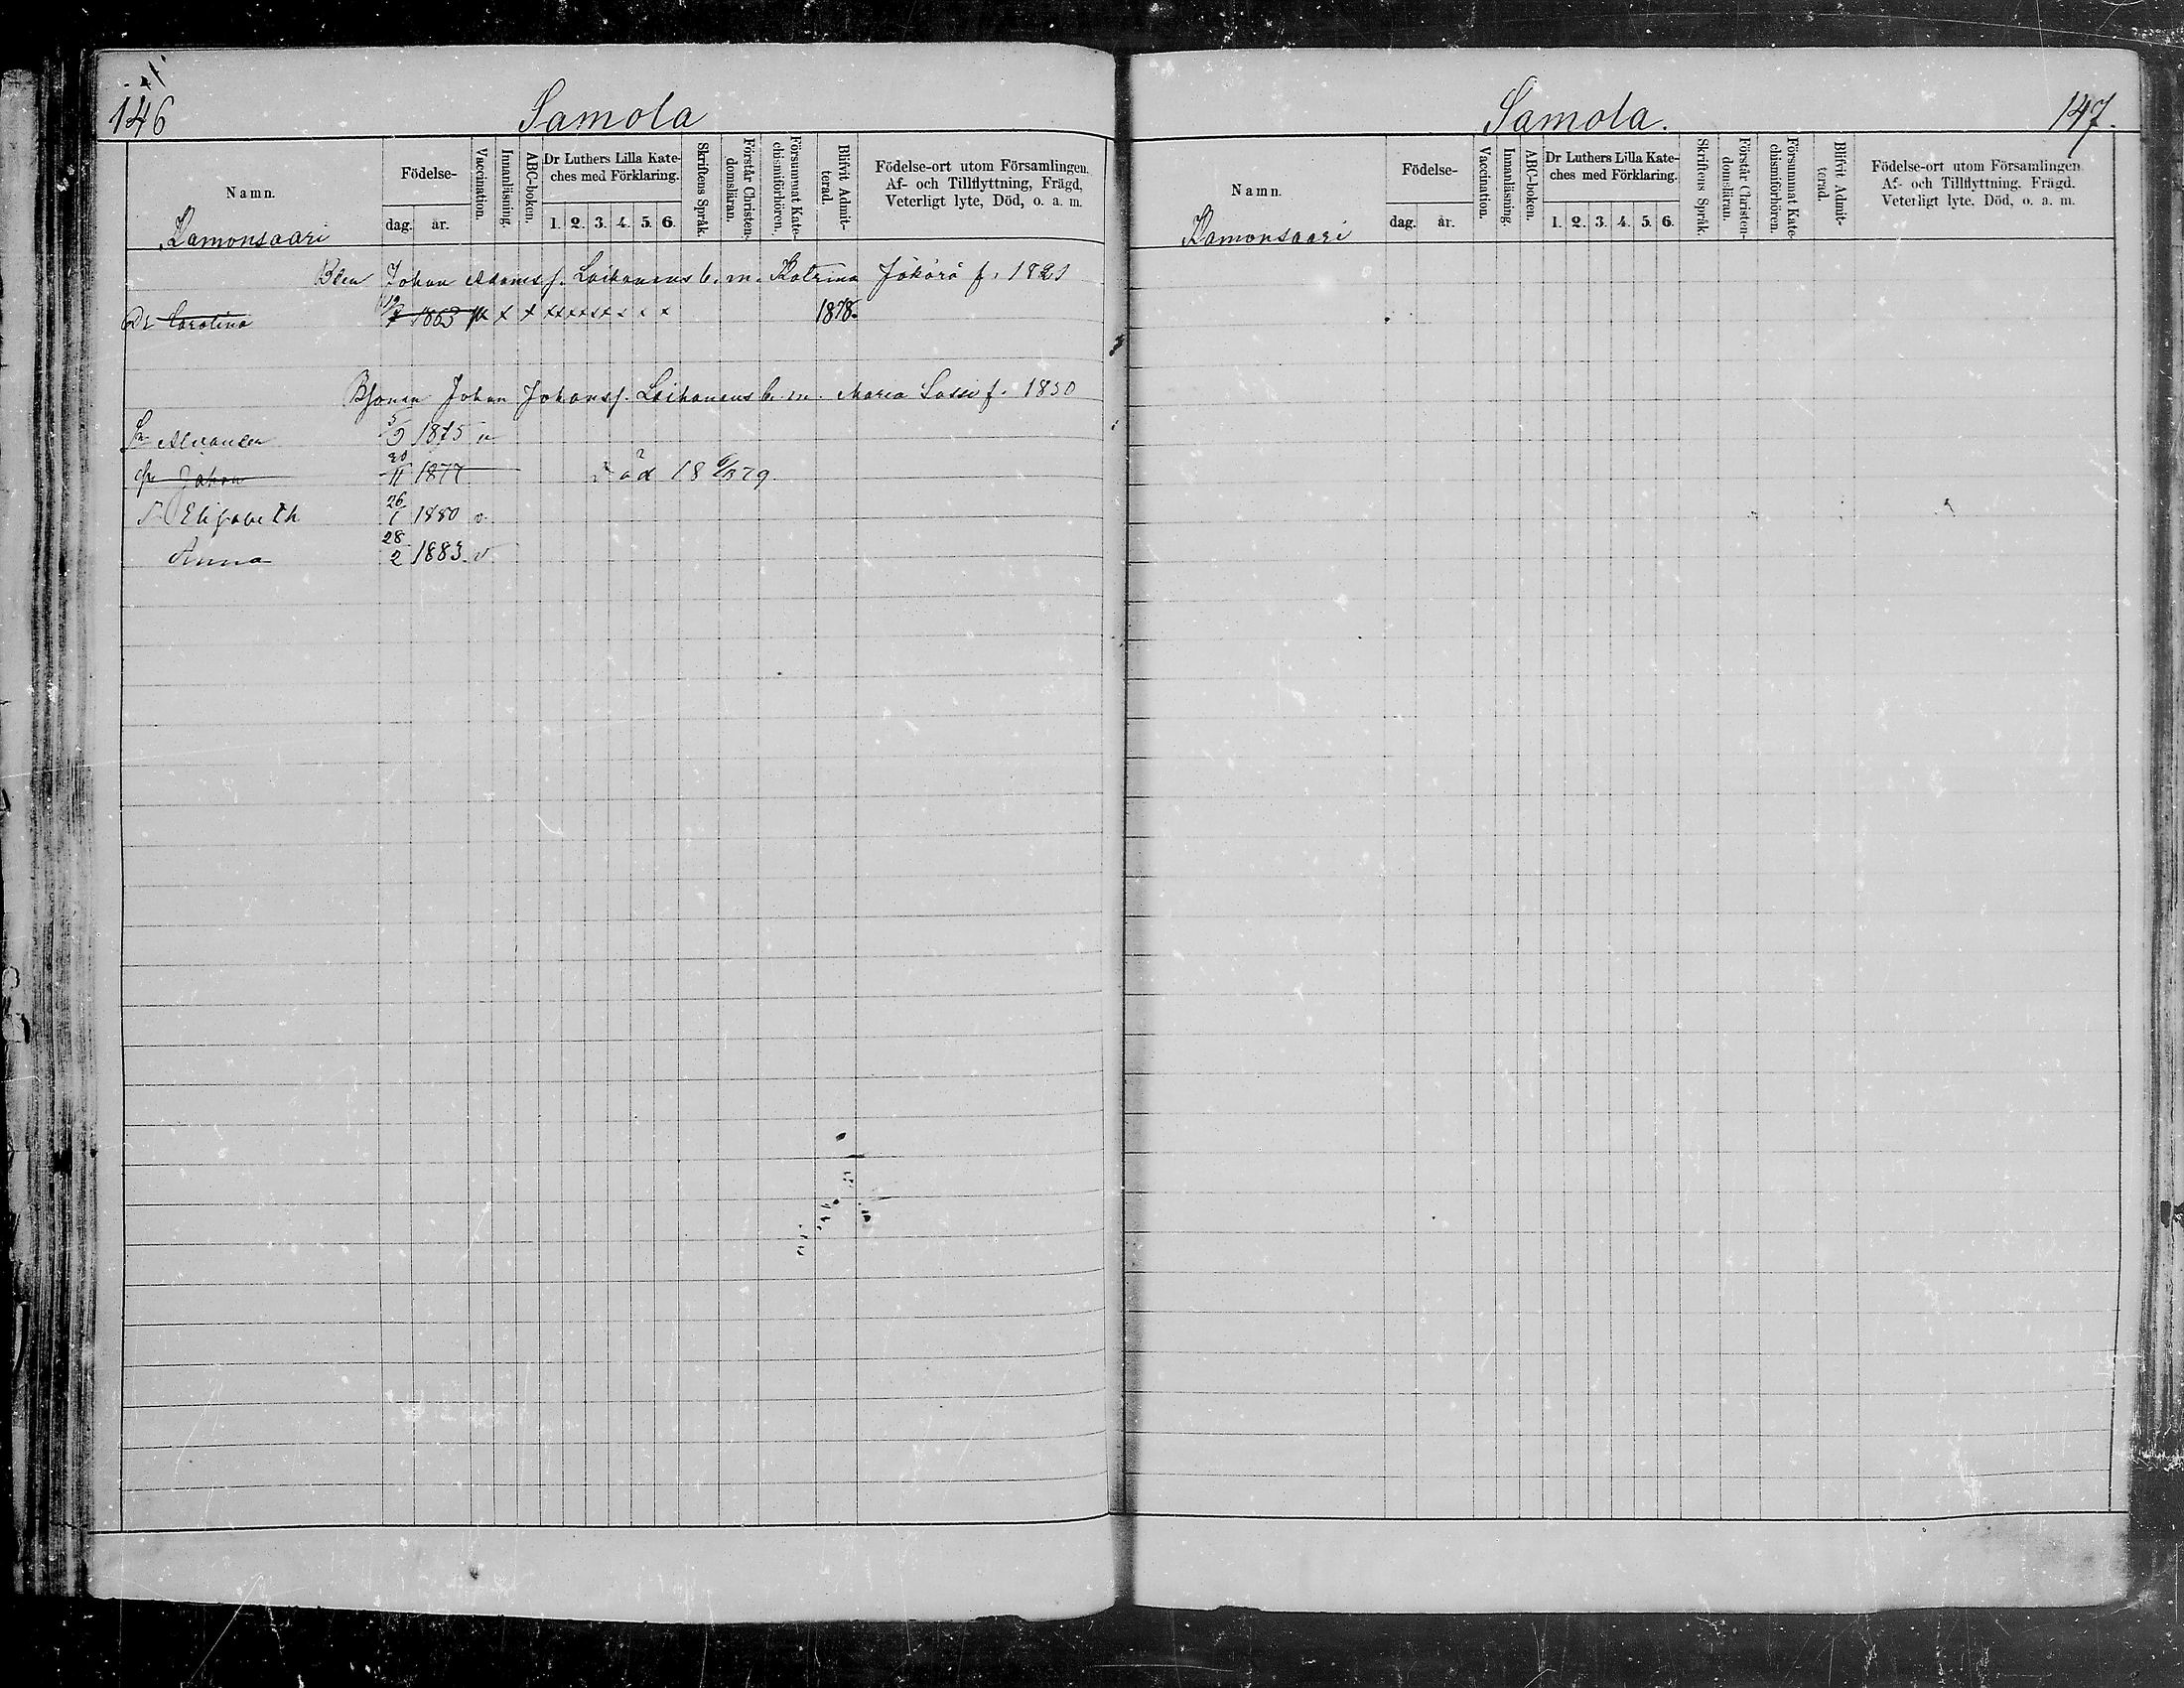 146
Samola
Namn.
Födelse-
dag.
år.
Vaccination.
Innanläsning.
ABC-boken.
Dr Luthers Lilla Kate-
ches med Förklaring.
1. 2. 3. 4. 5. 6.
Skriftens Språk.
Förstår Christen-
domsläran.
Försummat Kate-
chismiförhören.
Blifvit Admit-
terad.
Födelse-ort utom Församlingen.
Af- och Tillflyttning, Frägd,
Veterligt lyte, Död, o. a. m.
Ramonsaari
Johan Adamsf. Laihanens b. m. Katrina Jökörö f. 1821
Dr Carolina 1863 x x x x x x x x x 1878.
Johan Johansf. Laihanens b. m. Maria Sassi f. 1850
5/5 1875
Johan 20/11 1877 Död 18 79.
Elisabeth 26/1 1880 v.
Anna 28/2 1883. v
Samola.
147.
Namn.
Födelse-
dag.
år.
Vaccination.
Innanläsning.
ABC-boken.
Dr Luthers Lilla Kate-
ches med Förklaring.
1. 2. 3. 4. 5. 6.
Skriftens Språk.
Förstår Christen-
domsläran.
Försummat Kate-
chismiförhören.
Blifvit Admit-
terad.
Födelse-ort utom Församlingen
Af- och Tillflyttning. Frägd.
Veterligt lyte, Död, o. a. m.
Ramonsaari